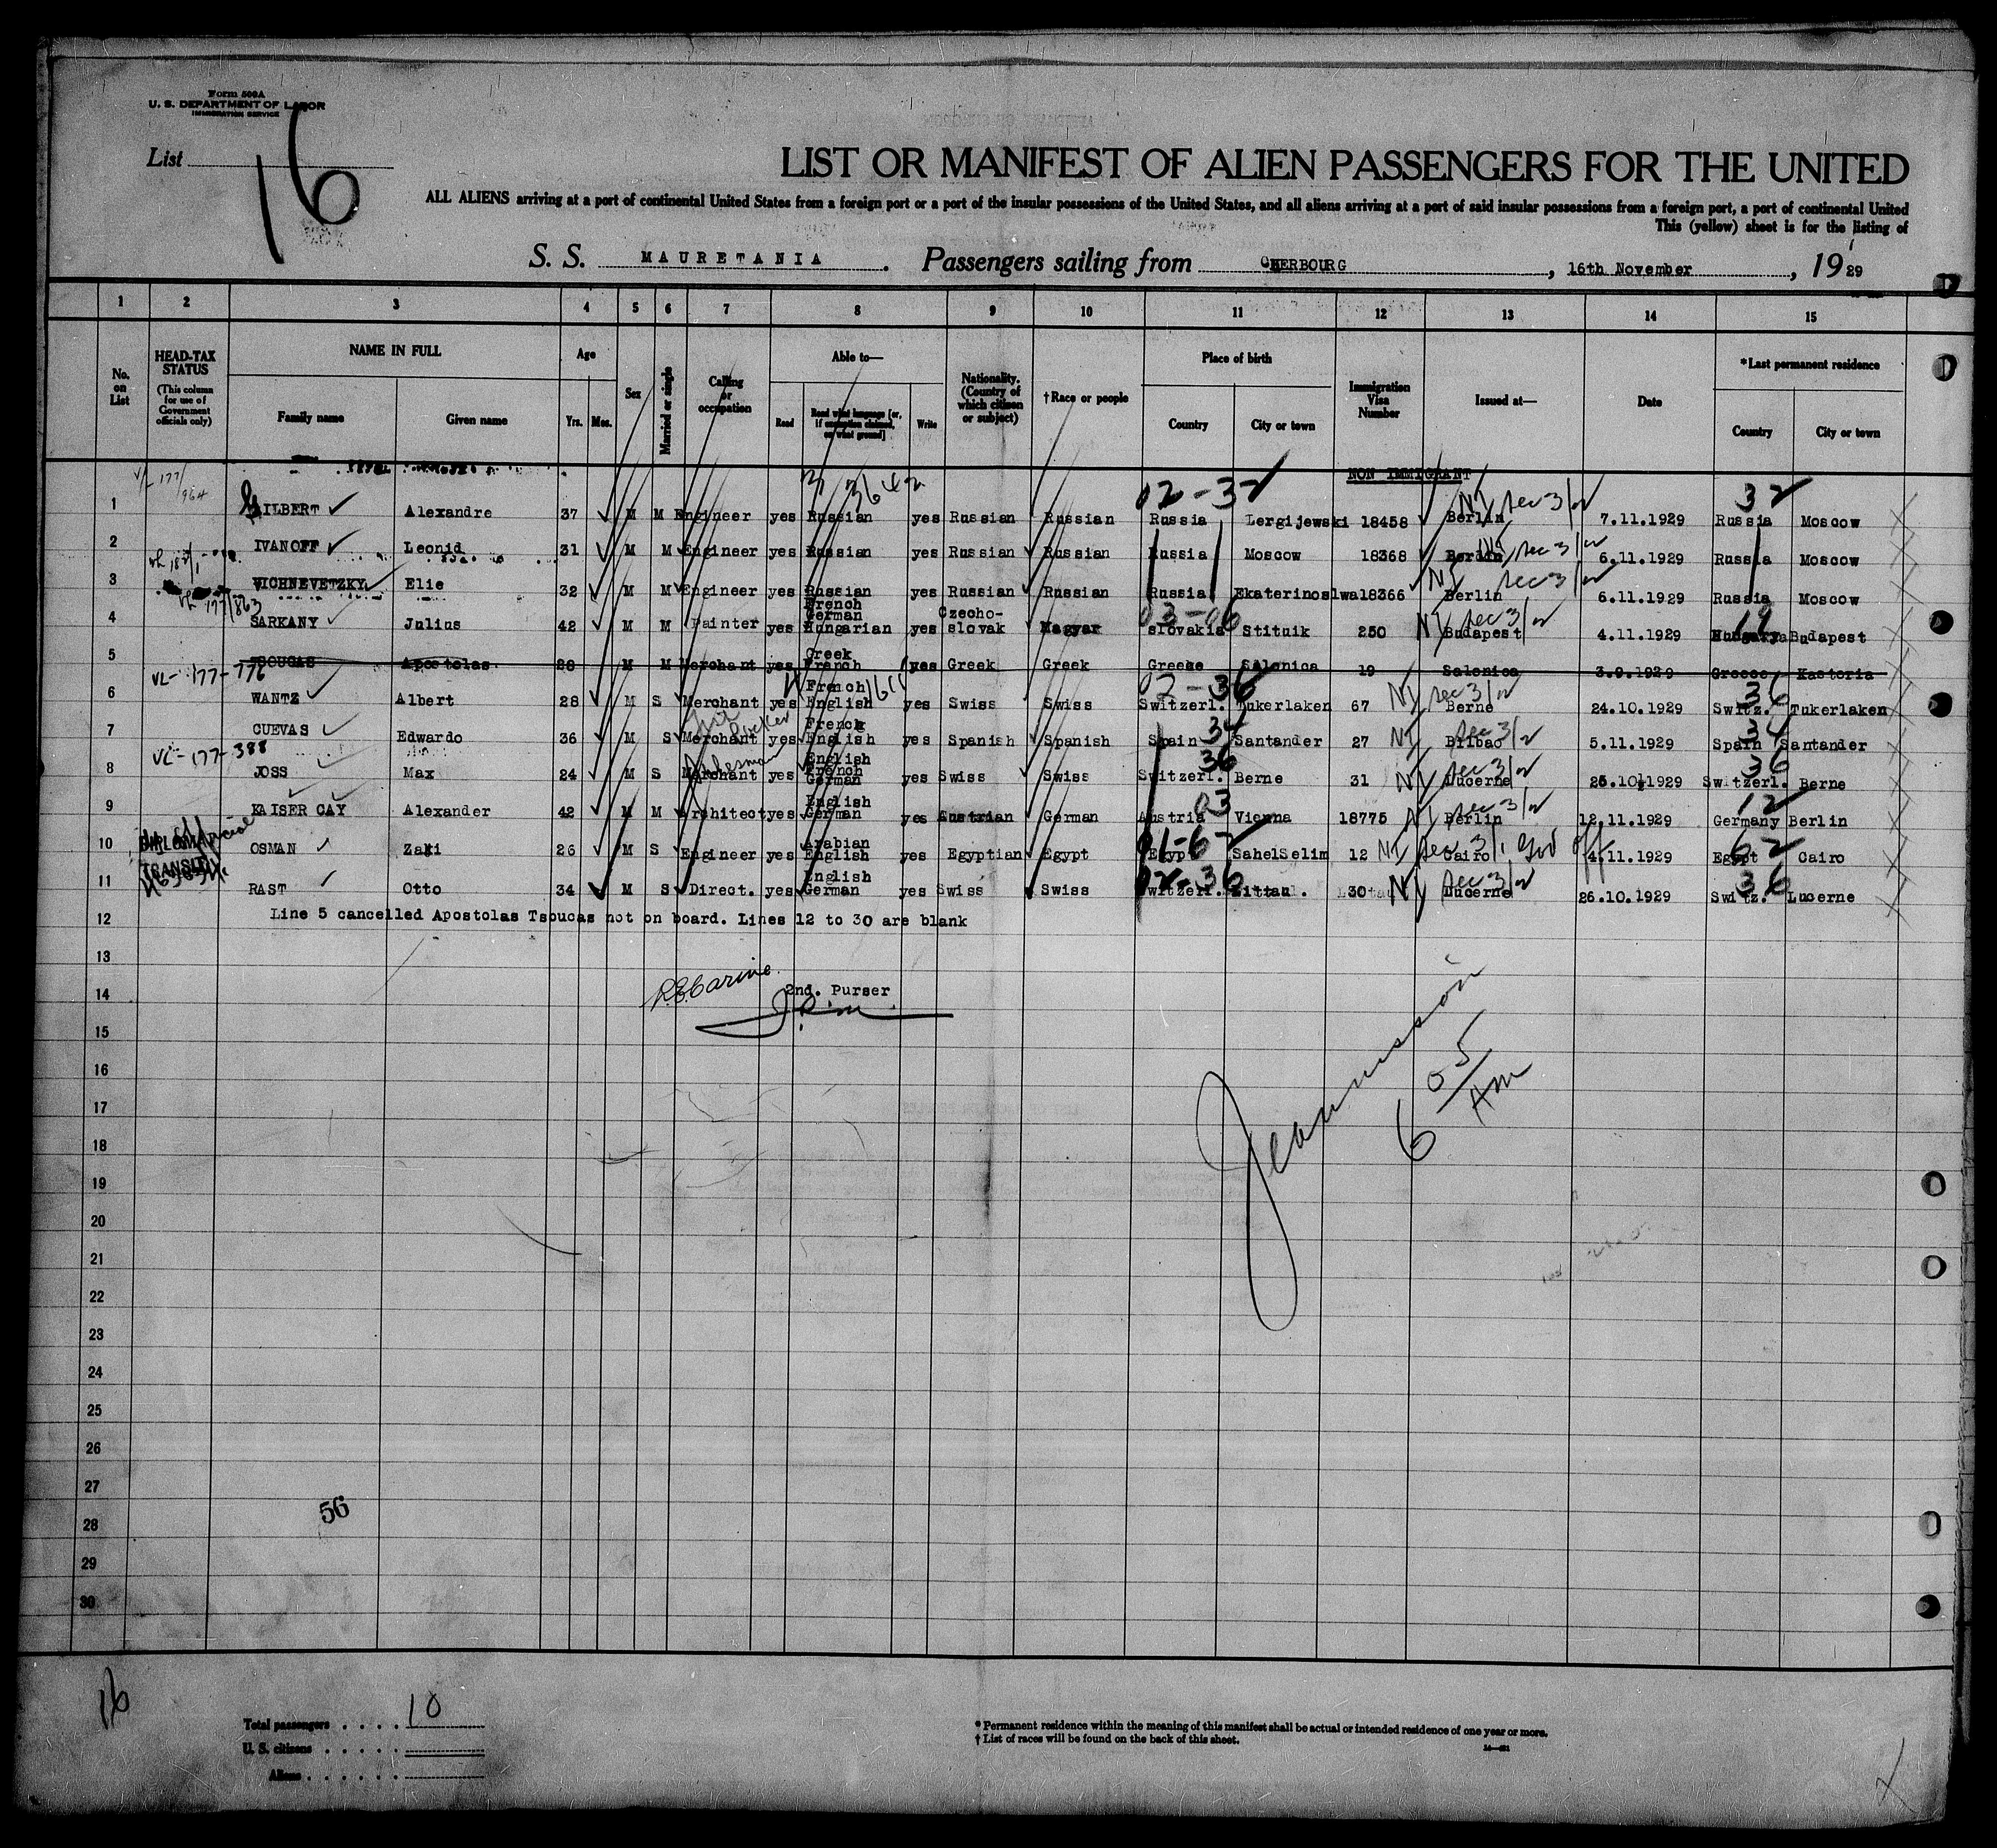 Form 500A
U. S. DEPARTMENT OF LABOR
IMMIGRATION SERVICE
List 16
LIST OR MANIFEST OF ALIEN PASSENGERS FOR THE UNITED
ALL ALIENS arriving at a port of continental United States from a foreign port or a port of the insular possessions of the United States, and all aliens arriving at a port of said insular possessions from a foreign port, a port of continental United
This (yellow) sheet is for the listing of
S. S. MAURETANIA. Passengers sailing from CHERBOURG, 16th November, 1929
1 2 3 4 5 6 7 8 9 10 11 12 13 14 15
No. on List
HEAD-TAX STATUS (This column for use of Government officials only)
NAME IN FULL Family name Given name
Age Yrs. Mos.
Sex
Married or single
Calling or occupation
Able to— Read Read what language [or, if exemption claimed, on what ground] Write
Nationality. (Country of which citizen or subject)
†Race or people
Place of birth Country City or town
Immigration Visa Number
Issued at—
Date
*Last permanent residence Country City or town
NON IMMIGRANT
02-32 32
1 GILBERT Alexandre 37 M M Engineer yes Russian yes Russian Russian Russia Lergijewski 18458 Berlin 7.11.1929 Russia Moscow
2 IVANOFF Leonid 31 M M Engineer yes Russian yes Russian Russian Russia Moscow 18368 Berlin 6.11.1929 Russia Moscow
3 VICHNEVETZKY Elie 32 M M Engineer yes Russian yes Russian Russian Russia Ekaterinoslwa 18366 Berlin 6.11.1929 Russia Moscow
4 SARKANY Julius 42 M M Painter yes French German Hungarian yes Czecho-slovak Magyar slovakia Stituik 250 Budapest 4.11.1929 Hungary Budapest
5 TSOUCAS Apostolas 28 M M Merchant yes Greek French yes Greek Greek Greece Salonica 19 Salonica 3.9.1929 Greece Kastoria
VL-177-776
6 WANTZ Albert 28 M S Merchant yes French English yes Swiss Swiss Switzerl. Tukerlaken 67 Berne 24.10.1929 Switz. Tukerlaken
7 CUEVAS Edwardo 36 M S Merchant yes French English yes Spanish Spanish Spain Santander 27 Bilbao 5.11.1929 Spain Santander
VL-177-388
8 JOSS Max 24 M S Merchant Salesman yes English French German yes Swiss Swiss Switzerl. Berne 31 Lucerne 25.10.1929 Switzerl. Berne
9 KAISER CAY Alexander 42 M M Architect yes English German yes Austrian German Austria Vienna 18775 Berlin 12.11.1929 Germany Berlin
10 OSMAN Zaki 26 M S Engineer yes Arabian English yes Egyptian Egypt Egypt SahelSelim 12 Cairo 4.11.1929 Egypt Cairo
TRANSIT
11 RAST Otto 34 M S Direct. yes English German yes Swiss Swiss Switzerl. Littau. 30 Lucerne 26.10.1929 Switz. Lucerne
12 Line 5 cancelled Apostolas Tsoucas not on board. Lines 12 to 30 are blank
13
14 2nd. Purser
15
16
17
18
19
20
21
22
23
24
25
26
27
56
28
29
30
6 05/AM
16
Total passengers . . . . 10
U. S. citizens . . . . .
Aliens . . . . . .
* Permanent residence within the meaning of this manifest shall be actual or intended residence of one year or more.
† List of races will be found on the back of this sheet.